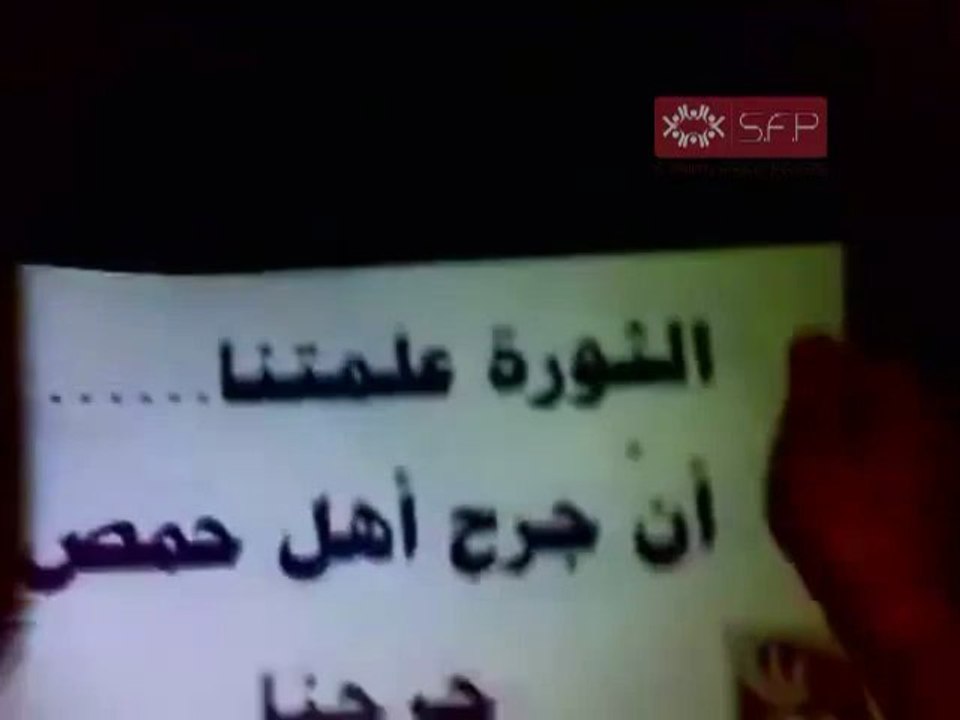 S.F.P
الثورة علمتنا......
أن جرح أهل حمص
جرحنا